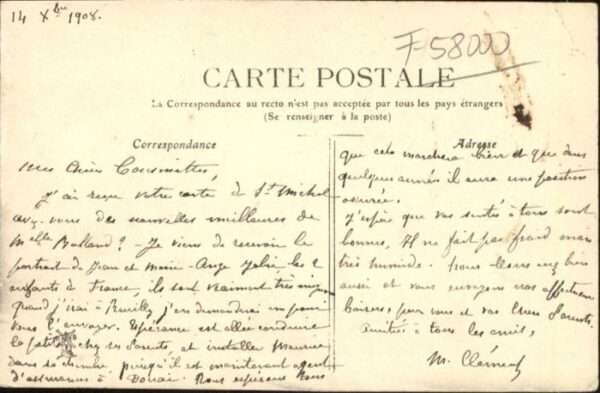 14 Xbre 1908.
F-58000
CARTE POSTALE
La Correspondance au recto n'est pas acceptée par tous les pays étrangers
(Se renseigner à la poste)
Correspondance
Mes Chères Cousinettes,
J'ai reçu votre carte de St Michel
avez-vous des nouvelles meilleures de
Melle ? - Je viens de recevoir le
portrait de Jean et Marie-Ange les 2
enfants de , ils sont vraiment très
quand j'irai à j'en demanderai un pour
vous l'envoyer. Espérance est allée conduire
la petite chez ses Parents, et installer Maurice
dans sa chambre, puisqu'il est maintenant agent
d'assurances à Douai. Nous espérons tous
Adresse
que cela marchera bien et que dans
quelques années il aura une position
assurée.
J'espère que vos santés à tous sont
bonnes, Il ne fait pas froid mais
très humide. Nous allons bien
aussi et vous envoyons nos affectueux
baisers, pour vous et vos Chers Parents.
Amitiés à tous les amis,
M. Clément